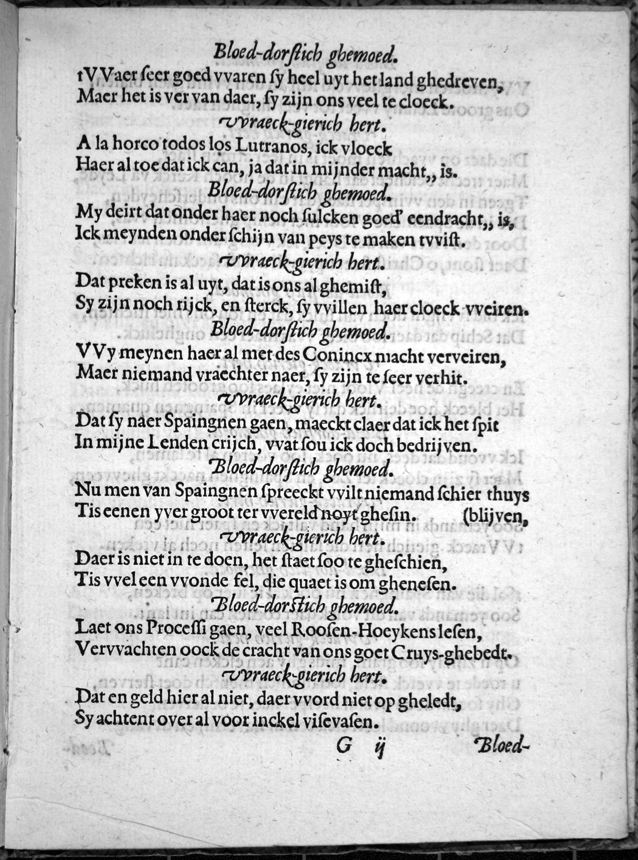 Bloed-dorſtich ghemoed.
tVVaer ſeer goed vvaren ſy heel uyt het land ghedreven,
Maer het is ver van daer, ſy zijn ons veel te cloeck.
VVraeck-gierich hert.
A la horco todos los Lutranos, ick vloeck
Haer al toe dat ick can, ja dat in mijnder macht,, is.
Bloed-dorſtich ghemoed.
My deirt dat onder haer noch ſulcken goed' eendracht,, is,
Ick meynden onder ſchijn van peys te maken tvviſt.
VVraeck-gierich hert.
Dat preken is al uyt, dat is ons al ghemiſt,
Sy zijn noch rijck, en ſterck, ſy vvillen haer cloeck vveiren.
Bloed-dorſtich ghemoed.
VVy meynen haer al met des Conincx macht verveiren,
Maer niemand vraechter naer, ſy zijn te ſeer verhit.
VVraeck-gierich hert.
Dat ſy naer Spaingnen gaen, maeckt claer dat ick het ſpit
In mijne Lenden crijch, vvat ſou ick doch bedrijven.
Bloed-dorſtich ghemoed.
Nu men van Spaingnen ſpreeckt vvilt niemand ſchier thuys
Tis eenen yver groot ter vvereld noyt gheſin. (blijven,
VVraeck-gierich hert.
Daer is niet in te doen, het ſtaet ſoo te gheſchien,
Tis vvel een vvonde fel, die quaet is om gheneſen.
Bloed-dorſtich ghemoed.
Laet ons Proceſſi gaen, veel Rooſen-Hoeykens leſen,
Vervvachten oock de cracht van ons goet Cruys-ghebedt.
VVraeck-gierich hert.
Dat en geld hier al niet, daer vvord niet op gheledt,
Sy achtent over al voor inckel viſevaſen.
G ij Bloed-